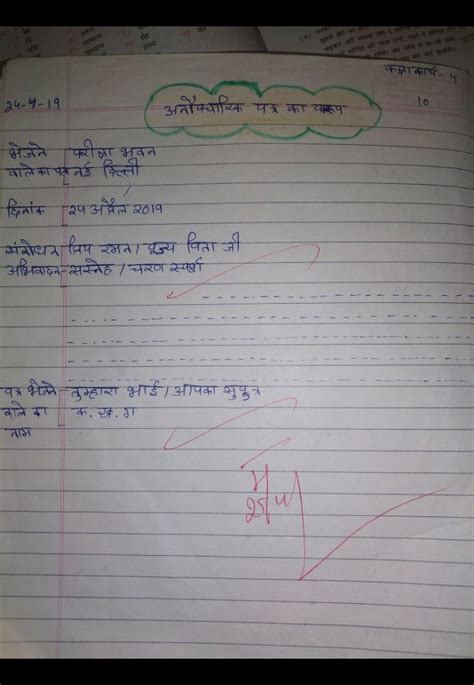 कक्षाकार्य - 4
24-4-19
अनौपचारिक पत्र का प्रारूप
10
भेजने परीक्षा भवन
वाले का पता नई दिल्ली
दिनांक 24 अप्रैल 2019
संबोधन प्रिय रमन / पूज्य पिता जी
अभिवादन - सस्नेह / चरण स्पर्श
पत्र भेजने - तुम्हारा भाई / आपका सुपुत्र
वाले का क. ख. ग
नाम